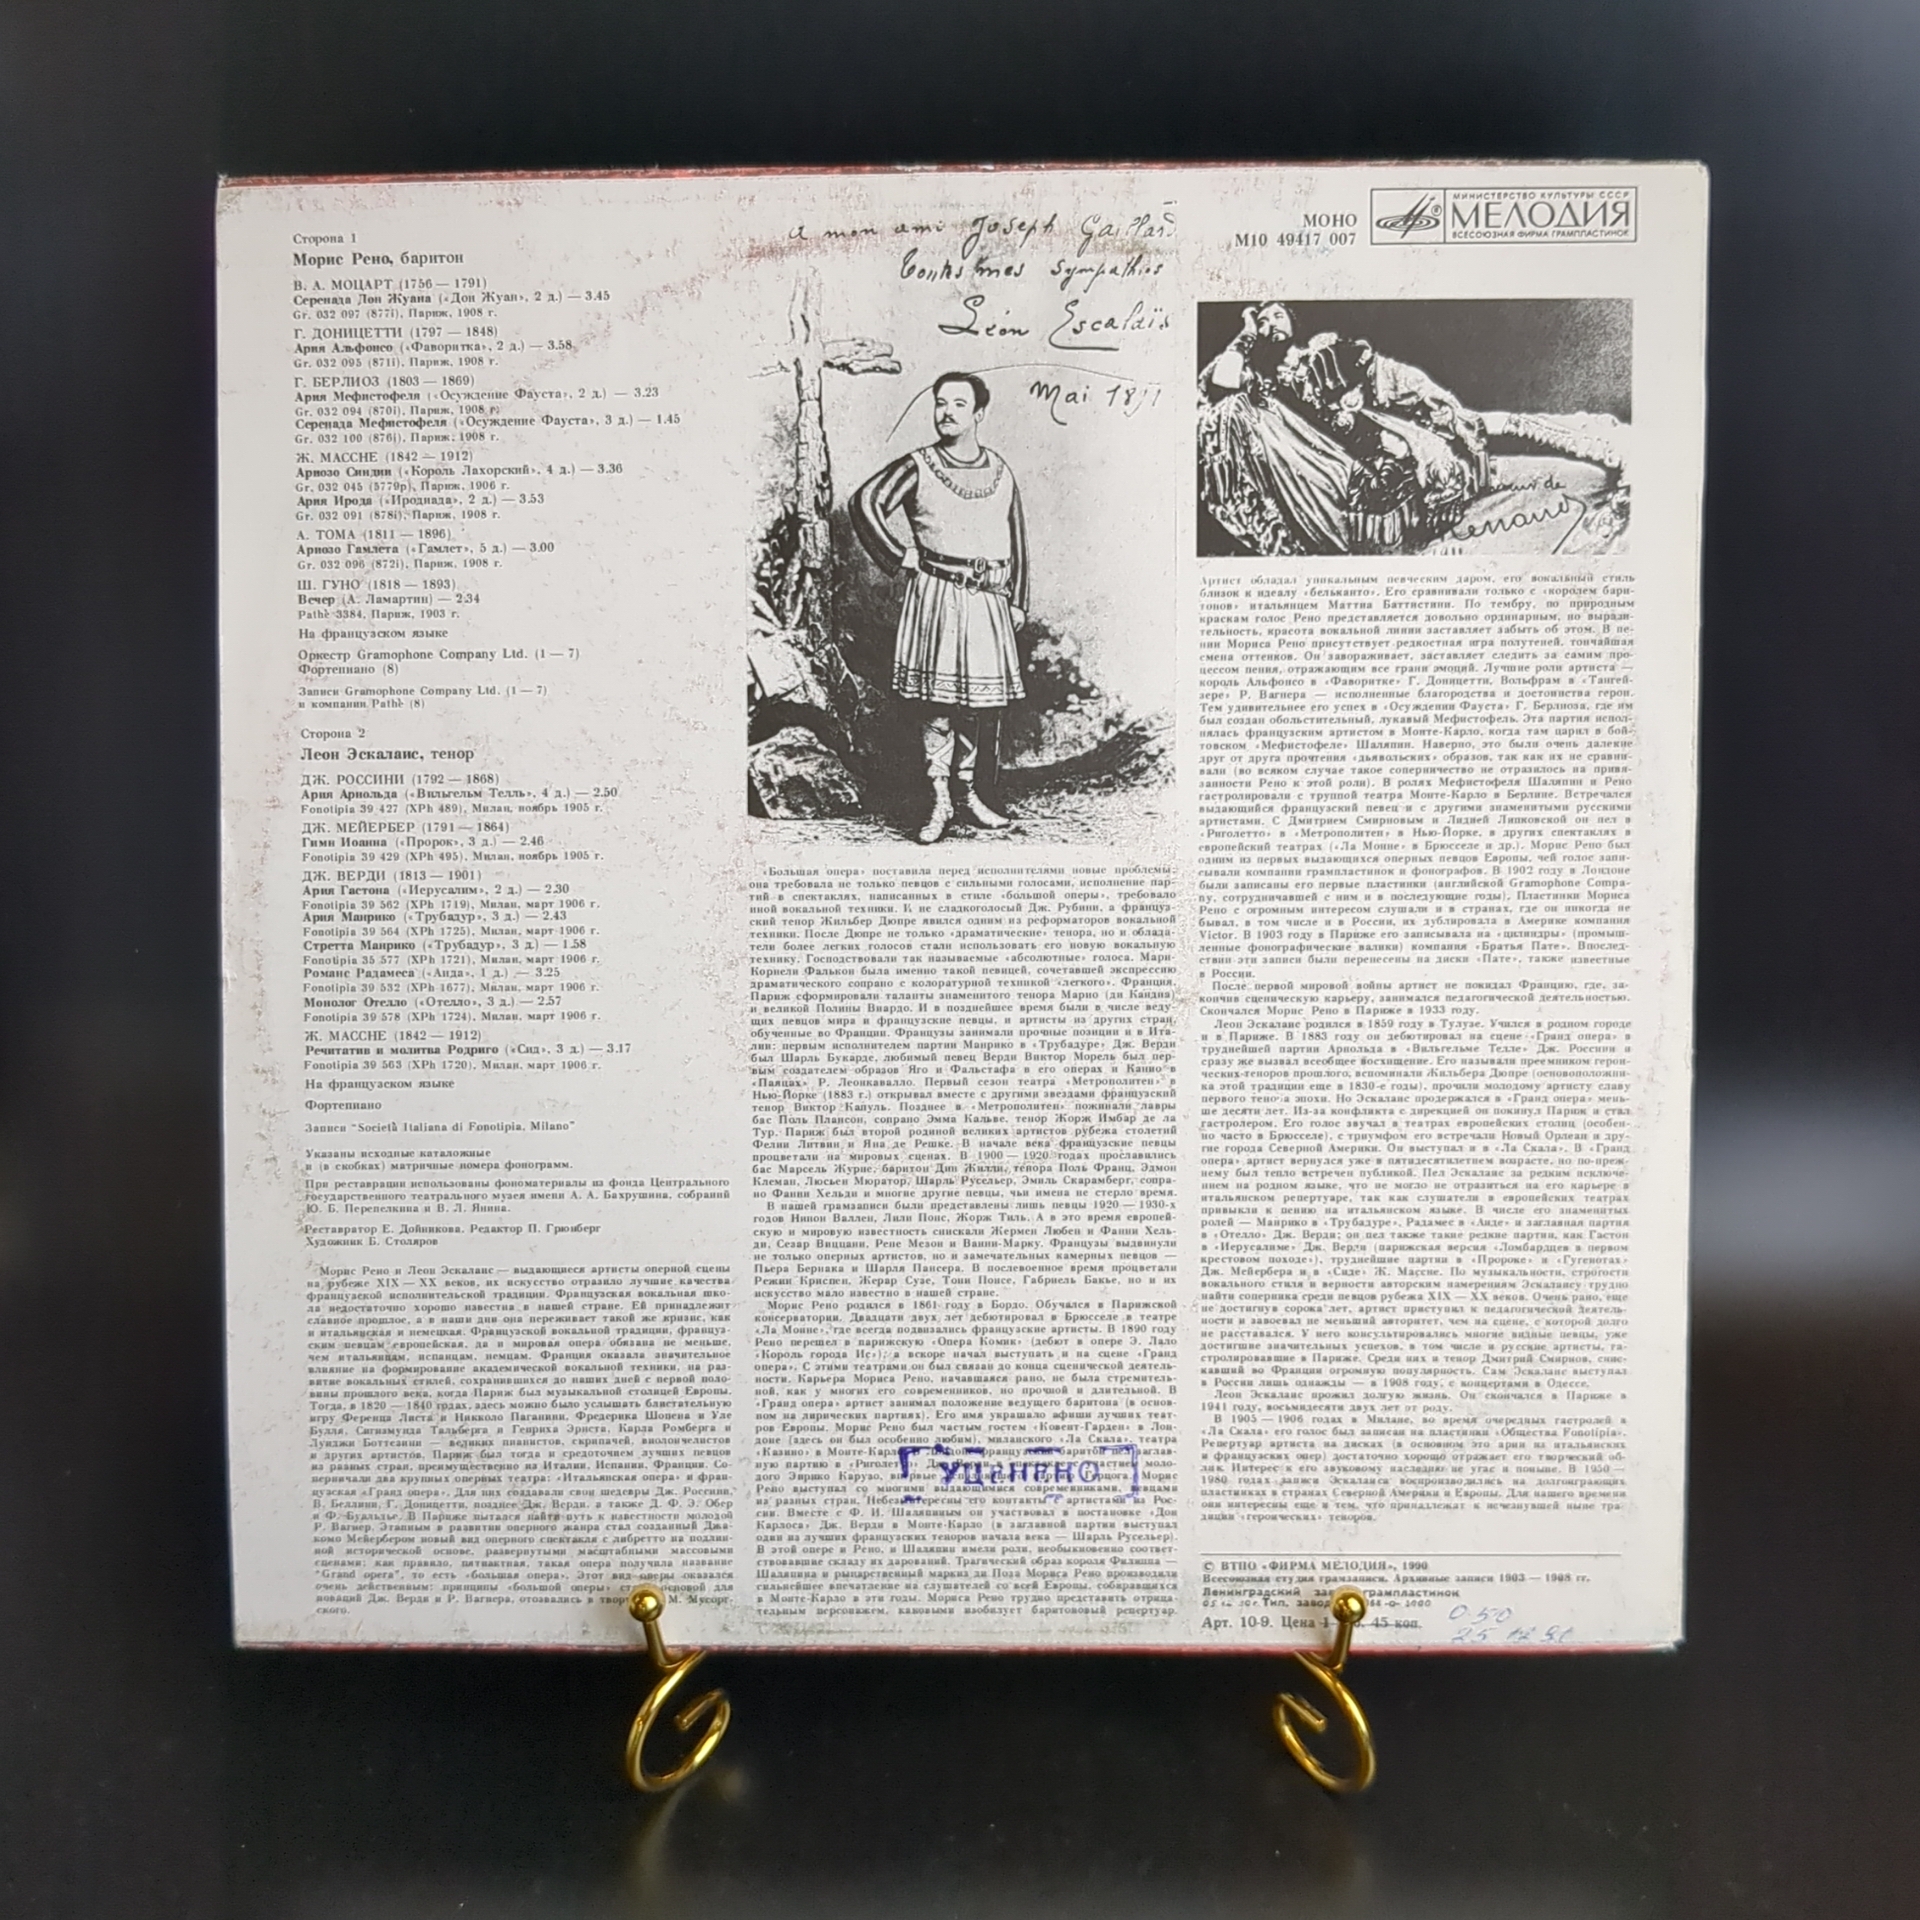 Сторона 1
Морис Рено, баритон
В. А. МОЦАРТ (1756 — 1791)
Серенада Дон Жуана («Дон Жуан», 2 д.) — 3.45
Gr. 032 097 (877i), Париж, 1908 г.
Г. ДОНИЦЕТТИ (1797 — 1848)
Ария Альфонсо («Фаворитка», 2 д.) — 3.58
Gr. 032 095 (871i), Париж, 1908 г.
Г. БЕРЛИОЗ (1803 — 1869)
Ария Мефистофеля («Осуждение Фауста», 2 д.) — 3.23
Gr. 032 094 (870i), Париж, 1908 г.
Серенада Мефистофеля («Осуждение Фауста», 3 д.) — 1.45
Gr. 032 100 (876i), Париж, 1908 г.
Ж. МАССНЕ (1842 — 1912)
Ариозо Синдии («Король Лахорский», 4 д.) — 3.36
Gr. 032 045 (5779p), Париж, 1906 г.
Ария Ирода («Иродиада», 2 д.) — 3.53
Gr. 032 091 (878i), Париж, 1908 г.
А. ТОМА (1811 — 1896)
Ариозо Гамлета («Гамлет», 5 д.) — 3.00
Gr. 032 096 (872i), Париж, 1908 г.
Ш. ГУНО (1818 — 1893)
Вечер (А. Ламартин) — 2.34
Pathè 3384, Париж, 1903 г.
На французском языке
Оркестр Gramophone Company Ltd. (1 — 7)
Фортепиано (8)
Записи Gramophone Company Ltd. (1 — 7)
и компании Pathè (8)
Сторона 2
Леон Эскалаис, тенор
ДЖ. РОССИНИ (1792 — 1868)
Ария Арнольда («Вильгельм Телль», 4 д.) — 2.50
Fonotipia 39 427 (XPh 489), Милан, ноябрь 1905 г.
ДЖ. МЕЙЕРБЕР (1791 — 1864)
Гимн Иоанна («Пророк», 3 д.) — 2.46
Fonotipia 39 429 (XPh 495), Милан, ноябрь 1905 г.
ДЖ. ВЕРДИ (1813 — 1901)
Ария Гастона («Иерусалим», 2 д.) — 2.30
Fonotipia 39 562 (XPh 1719), Милан, март 1906 г.
Ария Манрико («Трубадур», 3 д.) — 2.43
Fonotipia 39 564 (XPh 1725), Милан, март 1906 г.
Стретта Манрико («Трубадур», 3 д.) — 1.58
Fonotipia 35 577 (XPh 1721), Милан, март 1906 г.
Романс Радамеса («Аида», 1 д.) — 3.25
Fonotipia 39 532 (XPh 1677), Милан, март 1906 г.
Монолог Отелло («Отелло», 3 д.) — 2.57
Fonotipia 39 578 (XPh 1724), Милан, март 1906 г.
Ж. МАССНЕ (1842 — 1912)
Речитатив и молитва Родриго («Сид», 3 д.) — 3.17
Fonotipia 39 563 (XPh 1720), Милан, март 1906 г.
На французском языке
Фортепиано
Записи "Società Italiana di Fonotipia, Milano"
Указаны исходные каталожные
и (в скобках) матричные номера фонограмм.
При реставрации использованы фономатериалы из фонда Центрального
государственного театрального музея имени А. А. Бахрушина, собраний
Ю. Б. Перепелкина и В. Л. Янина.
Реставратор Е. Дойникова. Редактор П. Грюнберг
Художник Б. Столяров
Морис Рено и Леон Эскалаис — выдающиеся артисты оперной сцены
на рубеже XIX — XX веков, их искусство отразило лучшие качества
французской исполнительской традиции. Французская вокальная шко-
ла недостаточно хорошо известна в нашей стране. Ей принадлежит
славное прошлое, а в наши дни она переживает такой же кризис, как
и итальянская и немецкая. Французской вокальной традиции, француз-
ским певцам европейская, да и мировая опера обязана не меньше,
чем итальянцам, испанцам, немцам. Франция оказала значительное
влияние на формирование академической вокальной техники, на раз-
витие вокальных стилей, сохранившихся до наших дней с первой поло-
вины прошлого века, когда Париж был музыкальной столицей Европы.
Тогда, в 1820 — 1840 годах, здесь можно было услышать блистательную
игру Ференца Листа и Никколо Паганини, Фредерика Шопена и Уле
Булля, Сигизмунда Тальберга и Генриха Эрнста, Карла Ромберга и
Луиджи Боттезини — великих пианистов, скрипачей, виолончелистов
и других артистов. Париж был тогда и средоточием лучших певцов
из разных стран, преимущественно из Италии, Испании, Франции. Со-
перничали два крупных оперных театра: «Итальянская опера» и фран-
цузская «Гранд опера». Для них создавали свои шедевры Дж. Россини,
В. Беллини, Г. Доницетти, позднее Дж. Верди, а также Д. Ф. Э. Обер
и Ф. Буальдье. В Париже пытался найти путь к известности молодой
Р. Вагнер. Этапным в развитии оперного жанра стал созданный Джа-
комо Мейербером новый вид оперного спектакля с либретто на подлин-
ной исторической основе, развернутыми масштабными массовыми
сценами; как правило, пятиактная, такая опера получила название
"Grand opera", то есть «большая опера». Этот вид оперы оказался
очень действенным: принципы «большой оперы» основой для
новаций Дж. Верди и Р. Вагнера, отозвались в М. Мусорг-
ского.
A mon ami Joseph Gaillard
Toutes mes sympathies
Léon Escalaïs
Mai 18
«Большая опера» поставила перед исполнителями новые проблемы:
она требовала не только певцов с сильными голосами, исполнение пар-
тий в спектаклях, написанных в стиле «большой оперы», требовало
иной вокальной техники. И не сладкоголосый Дж. Рубини, а француз-
ский тенор Жильбер Дюпре явился одним из реформаторов вокальной
техники. После Дюпре не только «драматические» тенора, но и облада-
тели более легких голосов стали использовать его новую вокальную
технику. Господствовали так называемые «абсолютные» голоса. Мари-
Корнели Фалькон была именно такой певицей, сочетавшей экспрессию
драматического сопрано с колоратурной техникой «легкого». Франция,
Париж сформировали таланты знаменитого тенора Марио (ди Кандиа)
и великой Полины Виардо. И в позднейшее время были в числе веду-
щих певцов мира и французские певцы, и артисты из других стран,
обученные во Франции. Французы занимали прочные позиции и в Ита-
лии: первым исполнителем партии Манрико в «Трубадуре» Дж. Верди
был Шарль Букарде, любимый певец Верди Виктор Морель был пер-
вым создателем образов Яго и Фальстафа в его операх и Канио в
«Паяцах» Р. Леонкавалло. Первый сезон театра «Метрополитен» в
Нью-Йорке (1883 г.) открывал вместе с другими звездами французский
тенор Виктор Капуль. Позднее в «Метрополитен» пожинали лавры
бас Поль Плансон, сопрано Эмма Кальве, тенор Жорж Имбар де ла
Тур. Париж был второй родиной великих артистов рубежа столетий
Фелии Литвин и Яна де Решке. В начале века французские певцы
процветали на мировых сценах. В 1900 — 1920 годах прославились
бас Марсель Журне, баритон Дин Жилли, тенора Поль Франц, Эдмон
Клеман, Люсьен Мюратор, Шарль Русельер, Эмиль Скарамберг, сопра-
но Фанни Хельди и многие другие певцы, чьи имена не стерло время.
В нашей грамзаписи были представлены лишь певцы 1920 — 1930-х
годов Нинон Валлен, Лили Понс, Жорж Тиль. А в это время европей-
скую и мировую известность снискали Жермен Любен и Фанни Хель-
ди, Сезар Виццани, Рене Мезон и Ванни-Марку. Французы выдвинули
не только оперных артистов, но и замечательных камерных певцов —
Пьера Бернака и Шарля Пансера. В послевоенное время процветали
Режин Криспен, Жерар Сузе, Тони Понсе, Габриель Бакье, но и их
искусство мало известно в нашей стране.
Морис Рено родился в 1861 году в Бордо. Обучался в Парижской
консерватории. Двадцати двух лет дебютировал в Брюсселе в театре
«Ла Моние», где всегда подвизались французские артисты. В 1890 году
Рено перешел в парижскую «Опера Комик» (дебют в опере Э. Лало
«Король города Ис»), а вскоре начал выступать и на сцене «Гранд
опера». С этими театрами он был связан до конца сценической деятель-
ности. Карьера Мориса Рено, начавшаяся рано, не была стремитель-
ной, как у многих его современников, но прочной и длительной. В
«Гранд опера» артист занимал положение ведущего баритона (в основ-
ном на лирических партиях). Его имя украшало афиши лучших теат-
ров Европы. Морис Рено был частым гостем «Ковент-Гарден» в Лон-
доне (здесь он был особенно любим), миланского «Ла Скала», театра
«Казино» в Монте-Карло. французский баритон пел заглав-
ную партию в «Риголетто» Дж. Верди участием моло-
дого Энрико Карузо, впервые исполнявшего Герцога. Морис
Рено выступал со многими выдающимися современниками, певцами
из разных стран. Небезынтересны его контакты с артистами из Рос-
сии. Вместе с Ф. И. Шаляпиным он участвовал в постановке «Дон
Карлоса» Дж. Верди в Монте-Карло (в заглавной партии выступал
один из лучших французских теноров начала века — Шарль Русельер).
В этой опере и Рено, и Шаляпин имели роли, необыкновенно соответ-
ствовавшие складу их дарований. Трагический образ короля Филиппа —
Шаляпина и рыцарственный маркиз ди Поза Мориса Рено производили
сильнейшее впечатление на слушателей со всей Европы, собиравшихся
в Монте-Карло в эти годы. Мориса Рено трудно представить отрица-
тельным персонажем, каковыми изобилует баритоновый репертуар.
УЦЕНЕНО
МОНО
М10 49417 007
МИНИСТЕРСТВО КУЛЬТУРЫ СССР
МЕЛОДИЯ
ВСЕСОЮЗНАЯ ФИРМА ГРАМПЛАСТИНОК
Артист обладал уникальным певческим даром, его вокальный стиль
близок к идеалу «бельканто». Его сравнивали только с «королем бари-
тонов» итальянцем Маттиа Баттистини. По тембру, по природным
краскам голос Рено представляется довольно ординарным, но вырази-
тельность, красота вокальной линии заставляет забыть об этом. В пе-
нии Мориса Рено присутствует редкостная игра полутеней, тончайшая
смена оттенков. Он завораживает, заставляет следить за самим про-
цессом пения, отражающим все грани эмоций. Лучшие роли артиста —
король Альфонсо в «Фаворитке» Г. Доницетти, Вольфрам в «Тангей-
зере» Р. Вагнера — исполненные благородства и достоинства герои.
Тем удивительнее его успех в «Осуждении Фауста» Г. Берлиоза, где им
был создан обольстительный, лукавый Мефистофель. Эта партия испол-
нялась французским артистом в Монте-Карло, когда там царил в бой-
товском «Мефистофеле» Шаляпин. Наверно, это были очень далекие
друг от друга прочтения «дьявольских» образов, так как их не сравни-
вали (во всяком случае такое соперничество не отразилось на привя-
занности Рено к этой роли). В ролях Мефистофеля Шаляпин и Рено
гастролировали с труппой театра Монте-Карло в Берлине. Встречался
выдающийся французский певец и с другими знаменитыми русскими
артистами. С Дмитрием Смирновым и Лидией Липковской он пел в
«Риголетто» в «Метрополитен» в Нью-Йорке, в других спектаклях в
европейский театрах («Ла Моние» в Брюсселе и др.). Морис Рено был
одним из первых выдающихся оперных певцов Европы, чей голос запи-
сывали компании грампластинок и фонографов. В 1902 году в Лондоне
были записаны его первые пластинки (английской Gramophone Compa-
ny, сотрудничавшей с ним и в последующие годы). Пластинки Мориса
Рено с огромным интересом слушали и в странах, где он никогда не
бывал, в том числе и в России, их дублировала в Америке компания
Victor. В 1903 году в Париже его записывала на «цилиндры» (промыш-
ленные фонографические валики) компания «Братья Пате». Впослед-
ствии эти записи были перенесены на диски «Пате», также известные
в России.
После первой мировой войны артист не покидал Францию, где, за-
кончив сценическую карьеру, занимался педагогической деятельностью.
Скончался Морис Рено в Париже в 1933 году.
Леон Эскалаис родился в 1859 году в Тулузе. Учился в родном городе
и в Париже. В 1883 году он дебютировал на сцене «Гранд опера» в
труднейшей партии Арнольда в «Вильгельме Телле» Дж. Россини и
сразу же вызвал всеобщее восхищение. Его называли преемником герои-
ческих теноров прошлого, вспоминали Жильбера Дюпре (основоположни-
ка этой традиции еще в 1830-е годы), прочили молодому артисту славу
первого тенора эпохи. Но Эскалаис продержался в «Гранд опера» мень-
ше десяти лет. Из-за конфликта с дирекцией он покинул Париж и стал
гастролером. Его голос звучал в театрах европейских столиц (особен-
но часто в Брюсселе), с триумфом его встречали Новый Орлеан и дру-
гие города Северной Америки. Он выступал и в «Ла Скала». В «Гранд
опера» артист вернулся уже в пятидесятилетнем возрасте, но по-преж-
нему был тепло встречен публикой. Пел Эскалаис за редким исключе-
нием на родном языке, что не могло не отразиться на его карьере в
итальянском репертуаре, так как слушатели в европейских театрах
привыкли к пению на итальянском языке. В числе его знаменитых
ролей — Манрико в «Трубадуре», Радамес в «Аиде» и заглавная партия
в «Отелло» Дж. Верди; он пел также такие редкие партии, как Гастон
в «Иерусалиме» Дж. Верди (парижская версия «Ломбардцев в первом
крестовом походе»), труднейшие партии в «Пророке» и «Гугенотах»
Дж. Мейербера и в «Сиде» Ж. Массне. По музыкальности, строгости
вокального стиля и верности авторским намерениям Эскалаису трудно
найти соперника среди певцов рубежа XIX — XX веков. Очень рано, еще
не достигнув сорока лет, артист приступил к педагогической деятель-
ности и завоевал не меньший авторитет, чем на сцене, с которой долго
не расставался. У него консультировались многие видные певцы, уже
достигшие значительных успехов, в том числе и русские артисты, га-
стролировавшие в Париже. Среди них и тенор Дмитрий Смирнов, снис-
кавший во Франции огромную популярность. Сам Эскалаис выступал
в России лишь однажды — в 1908 году, с концертами в Одессе.
Леон Эскалаис прожил долгую жизнь. Он скончался в Париже в
1941 году, восьмидесяти двух лет от роду.
В 1905 — 1906 годах в Милане, во время очередных гастролей в
«Ла Скала» его голос был записан на пластинки «Общества Fonotipia».
Репертуар артиста на дисках (в основном это арии из итальянских
и французских опер) достаточно хорошо отражает его творческий об-
лик. Интерес к его звуковому наследию не угас и поныне. В 1950 —
1980 годах записи Эскалаиса воспроизводились на долгоиграющих
пластинках в странах Северной Америки и Европы. Для нашего времени
они интересны еще и тем, что принадлежат к исчезнувшей ныне тра-
диции «героических» теноров.
© ВТПО «ФИРМА МЕЛОДИЯ», 1990
Всесоюзная студия грамзаписи. Архивные записи 1903 — 1908 гг.
Ленинградский грампластинок
Тип. завод
Арт. 10-9. Цена 45 коп.
0-50